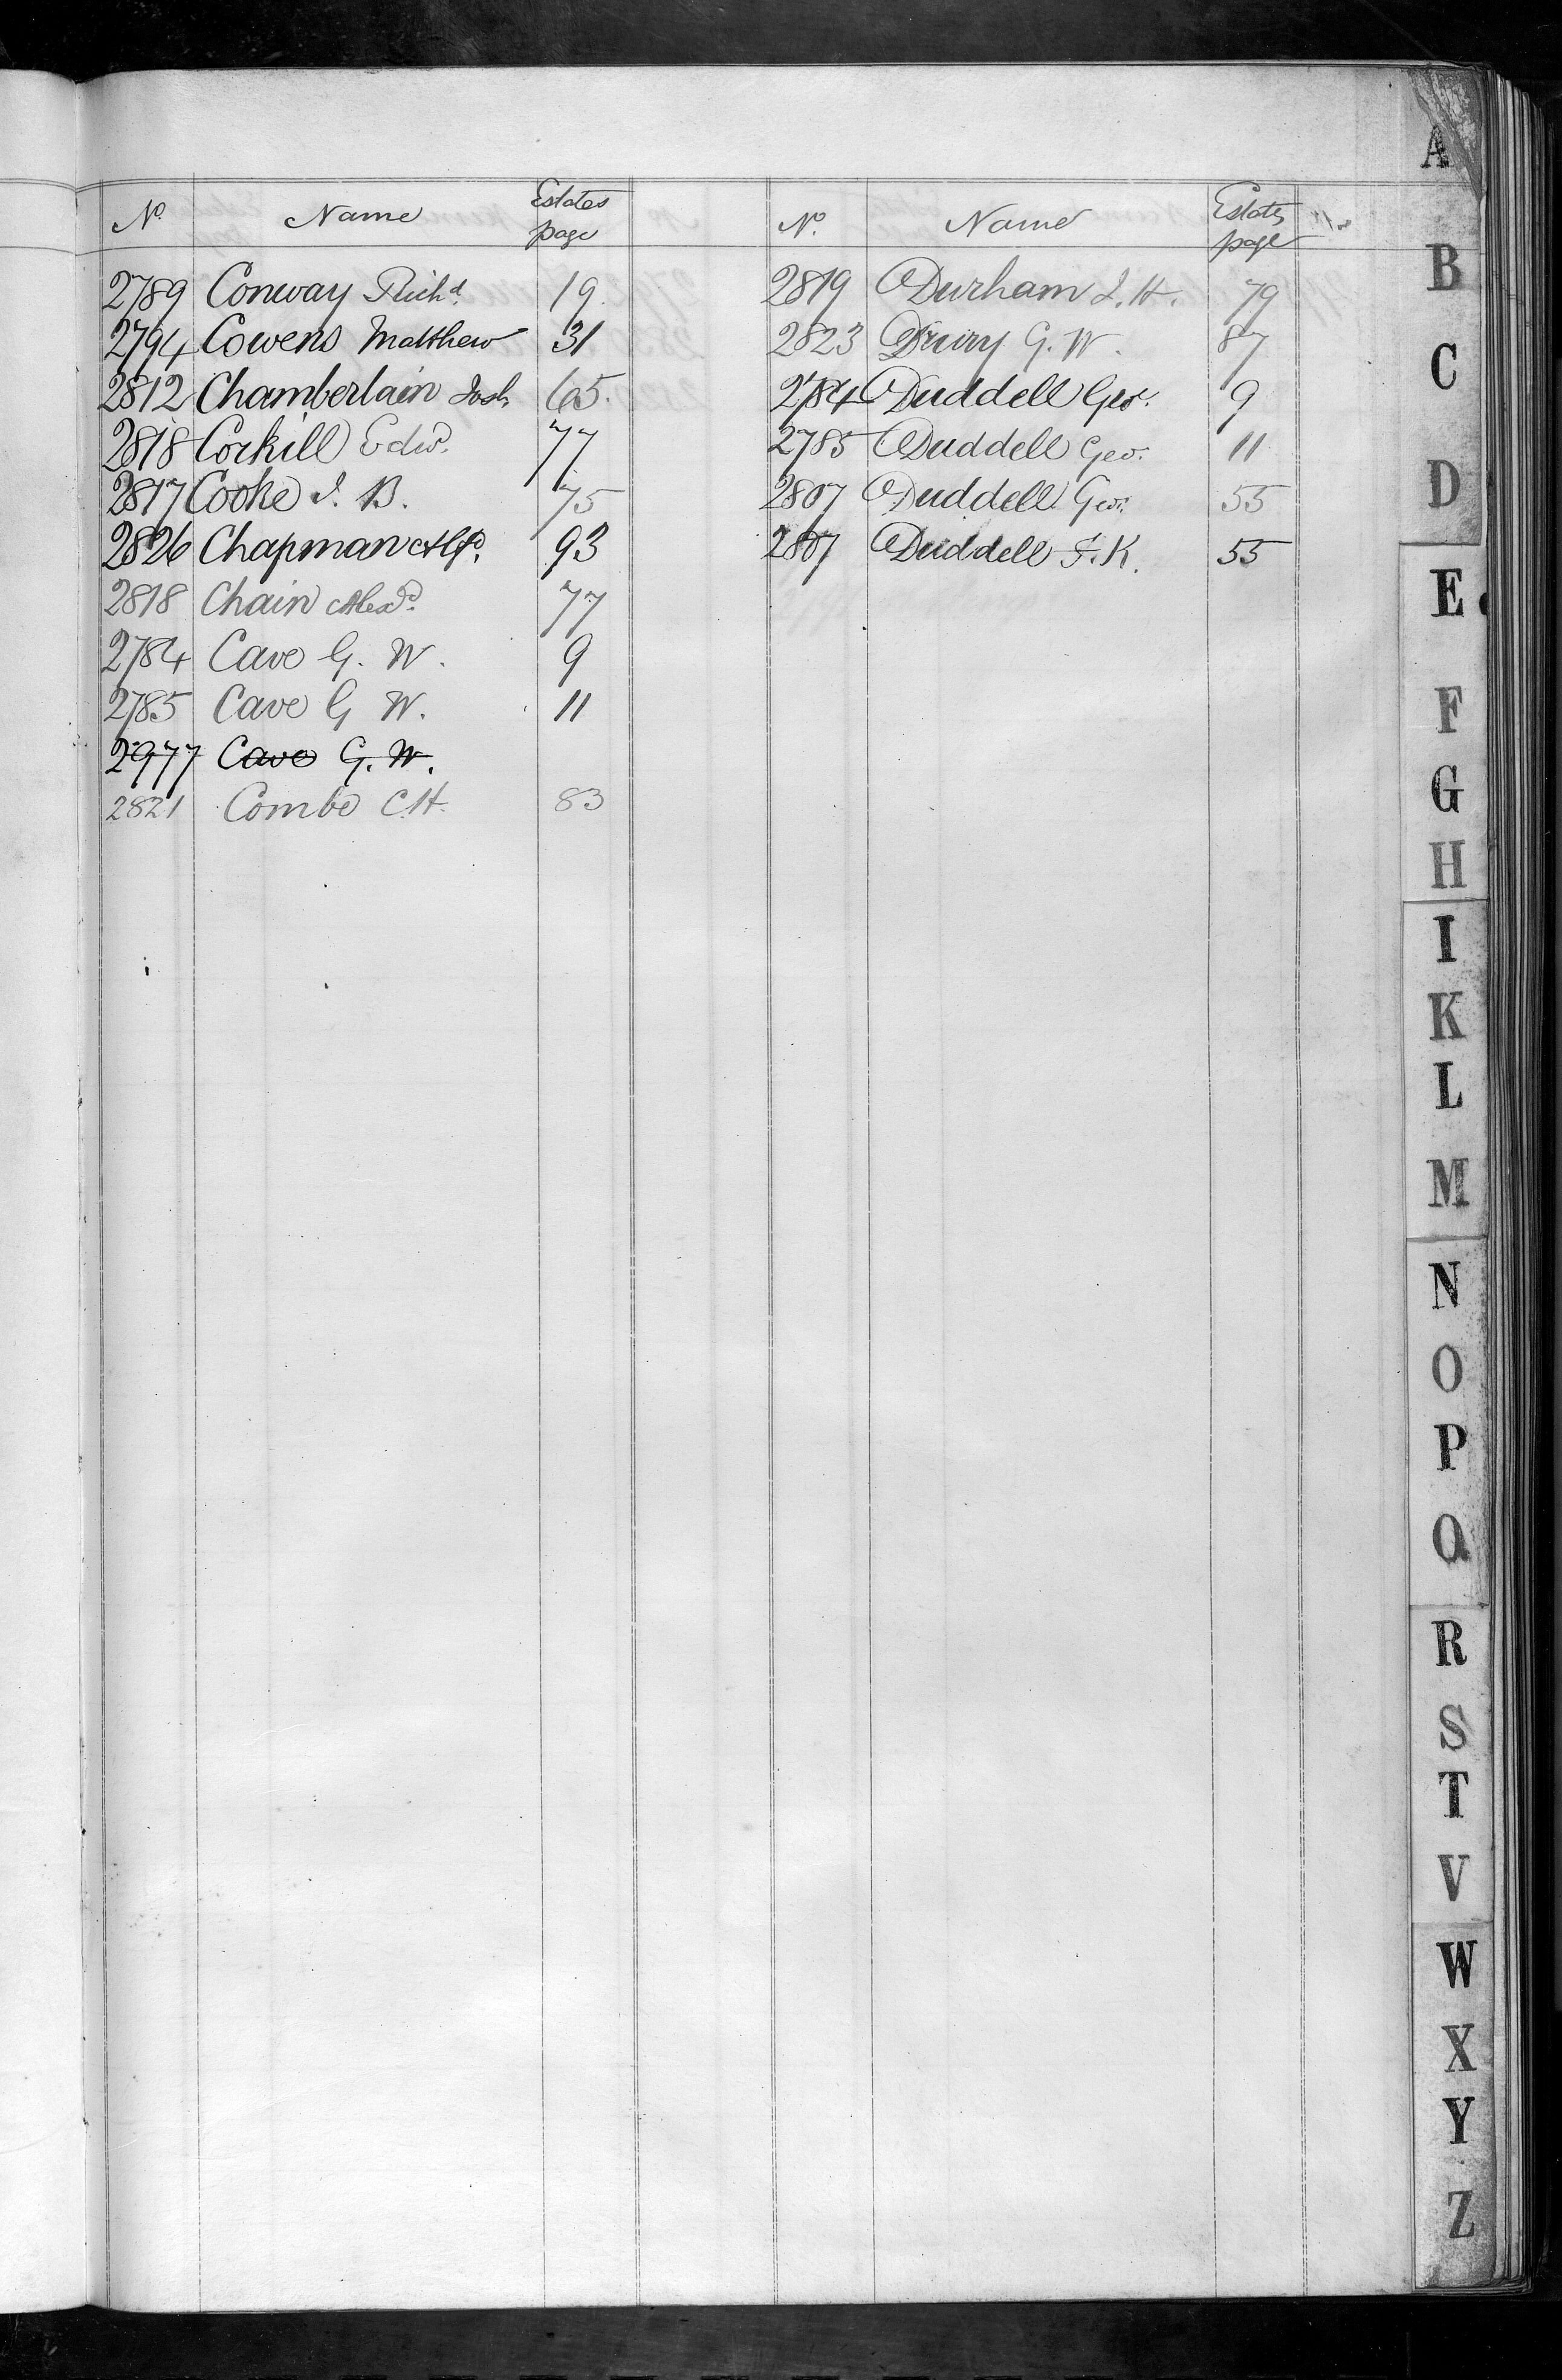 No. Name Estates page
2789 Conway Richd. 19.
2794 Cowens Matthew 31
2812 Chamberlain Josh. 65.
2818 Corkill Edwd. 77
2817 Cooke J. B. 75
2826 Chapman Alfd. 93
2818 Chain Alexd. 77
2784 Cave G. W. 9
2785 Cave G W. 11
2977 Cave G. W.
2821 Combe C.H. 83
No. Name Estates page
2819 Durham J. H. 79
2823 Drury G. W. 87
2784 Duddell Geo. 9
2785 Duddell Geo. 11
2807 Duddell Geo. 55
2807 Duddell F. K. 55
A
B
C
D
E
F
G
H
I
K
L
M
N
O
P
Q
R
S
T
V
W
X
Y
Z